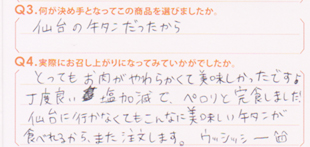 Q3.何が決め手となってこの商品を選びましたか。
仙台の牛タンだったから
Q4.実際にお召し上がりになってみていかがでしたか。
とってもお肉がやわらかくて美味しかったですよ
丁度良い塩加減で、ペロリと完食しました!
仙台に行かなくてもこんなに美味しい牛タンが
食べれるから、また注文します。ウッシッシー